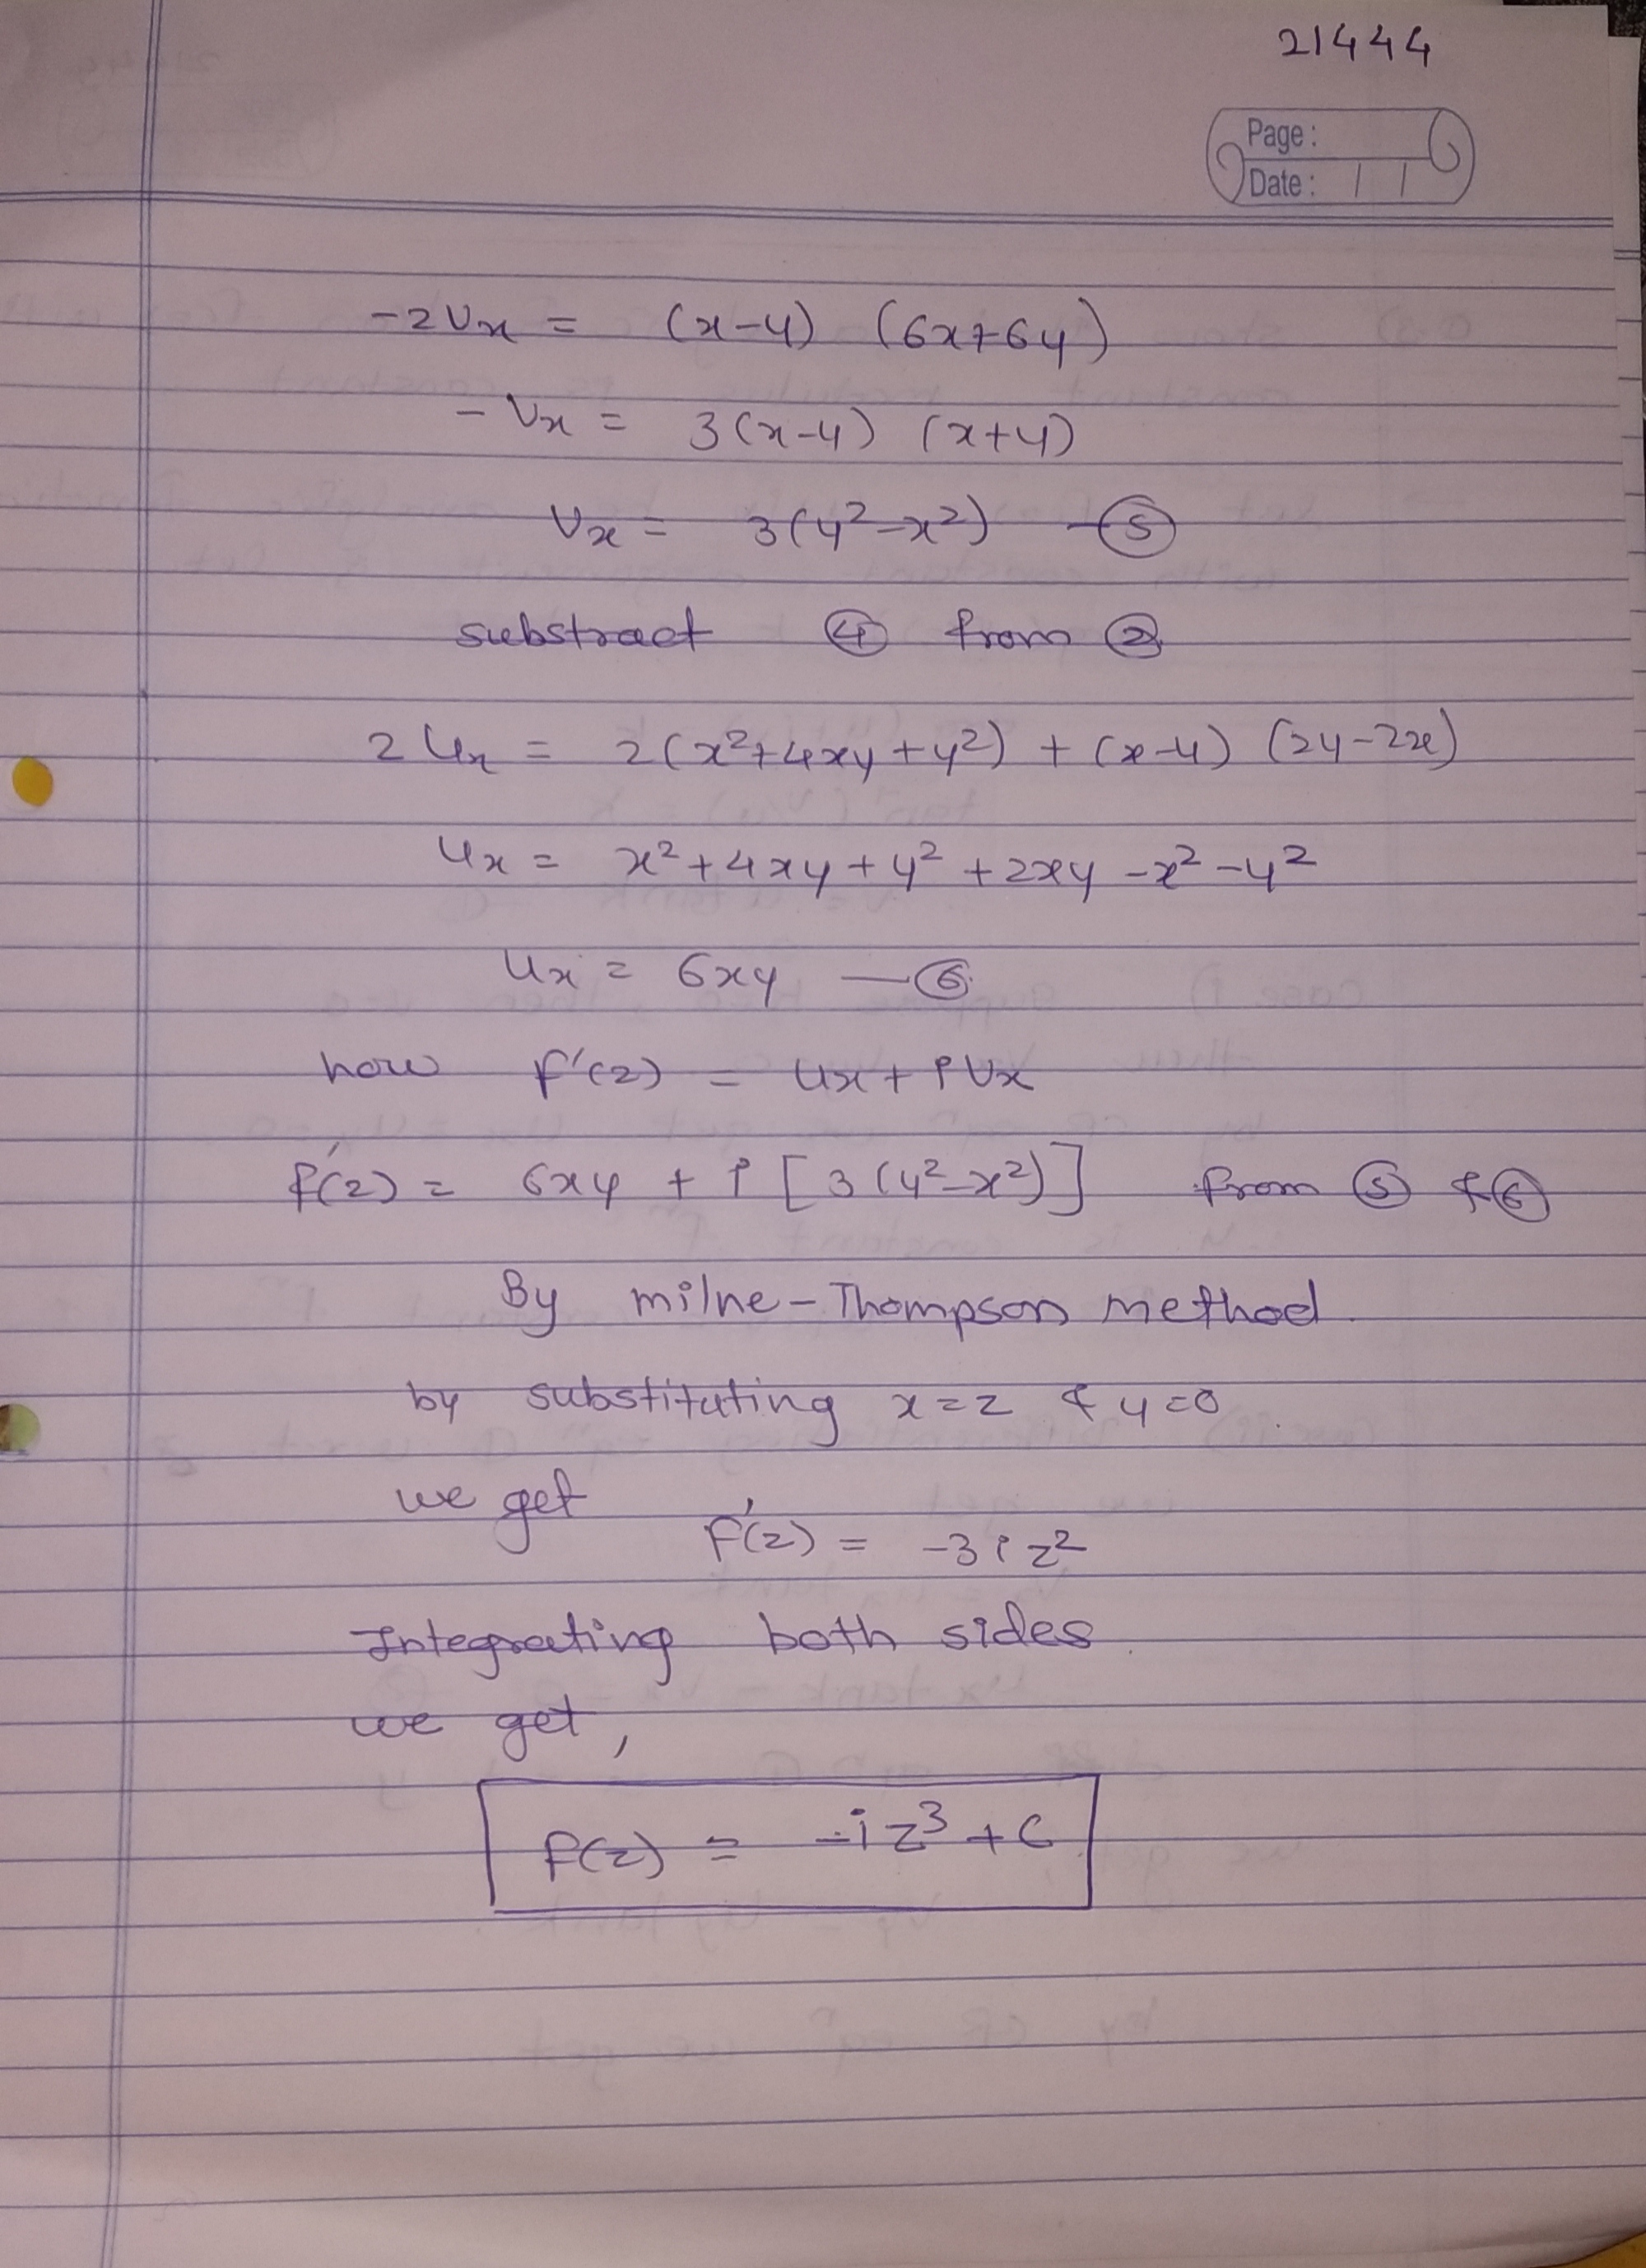 21444
Page :
Date : / /
-2Vx = (x-y) (6x+6y)
- Vx = 3(x-y) (x+y)
Vx = 3(y²-x²) —⑤
substract ④ from ②
2Ux = 2(x²+4xy+y²) + (x-y) (2y-2x)
Ux = x²+4xy+y²+2xy-x²-y²
Ux = 6xy —⑥
now f'(z) = Ux+iVx
f'(z) = 6xy + i [3(y²-x²)] from ⑤ & ⑥
By milne-Thompson method.
by substituting x=z & y=0.
we get
f'(z) = -3iz²
Integrating both sides.
we get,
f(z) = -iz³+c